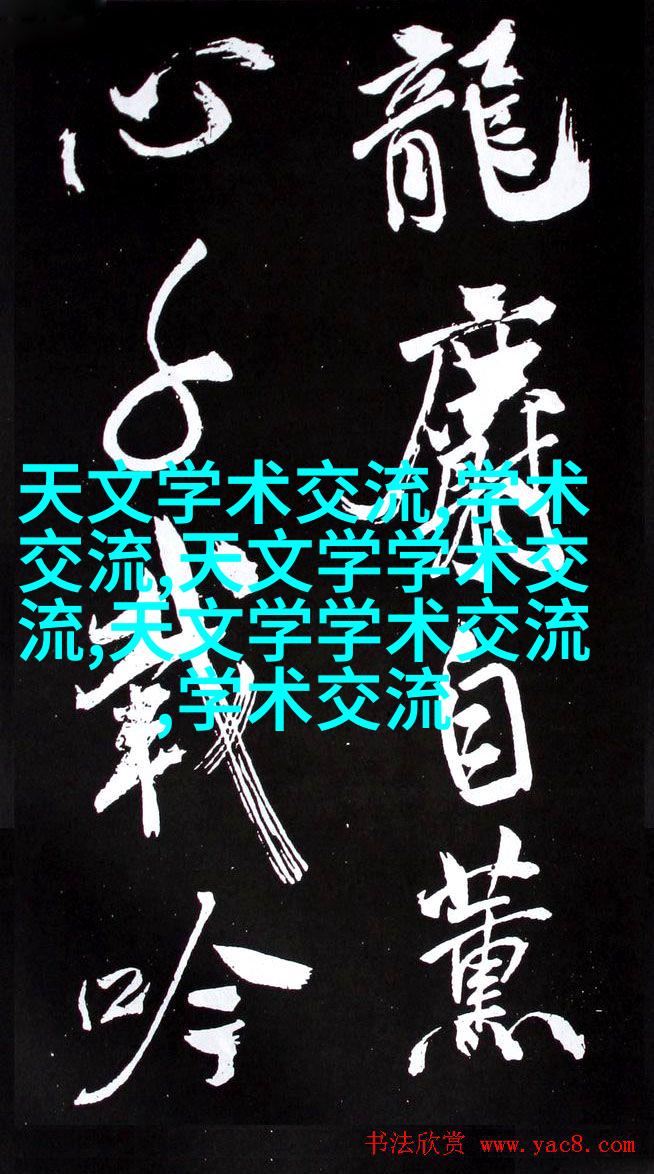 龍自薰
心千載吟
天文学术交流,学术
交流,天文学学术交
流,天文学学术交流
,学术交流
书法欣赏 www.yac8.com